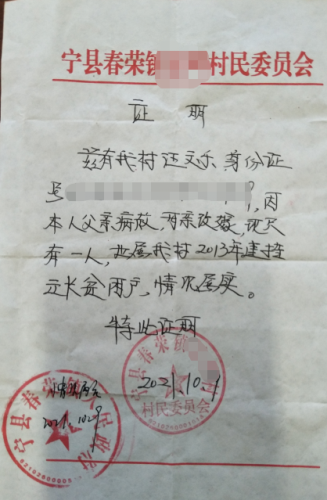 宁县春荣镇 村民委员会
证明
兹有我村 身份证
号 因
本人父亲病故,母亲改嫁,现只
有一人,也属我村2013年建档
立卡贫困户,情况属实。
特此证明
宁县春荣镇
2021.10.
村民委员会
情况属实
2021.10.29
宁县春荣镇人民政府